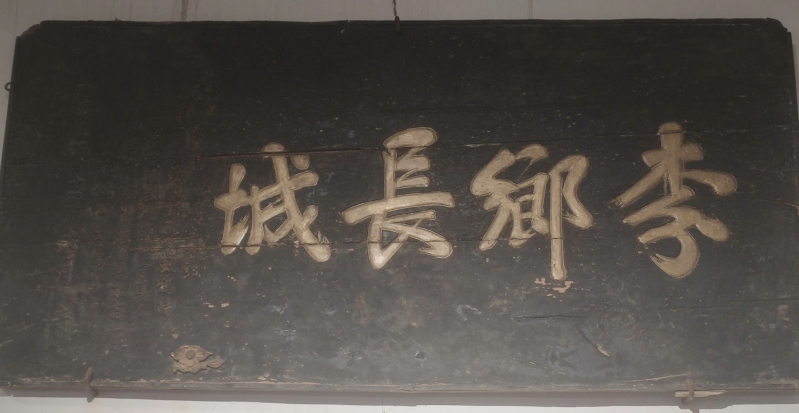 李鄉長城